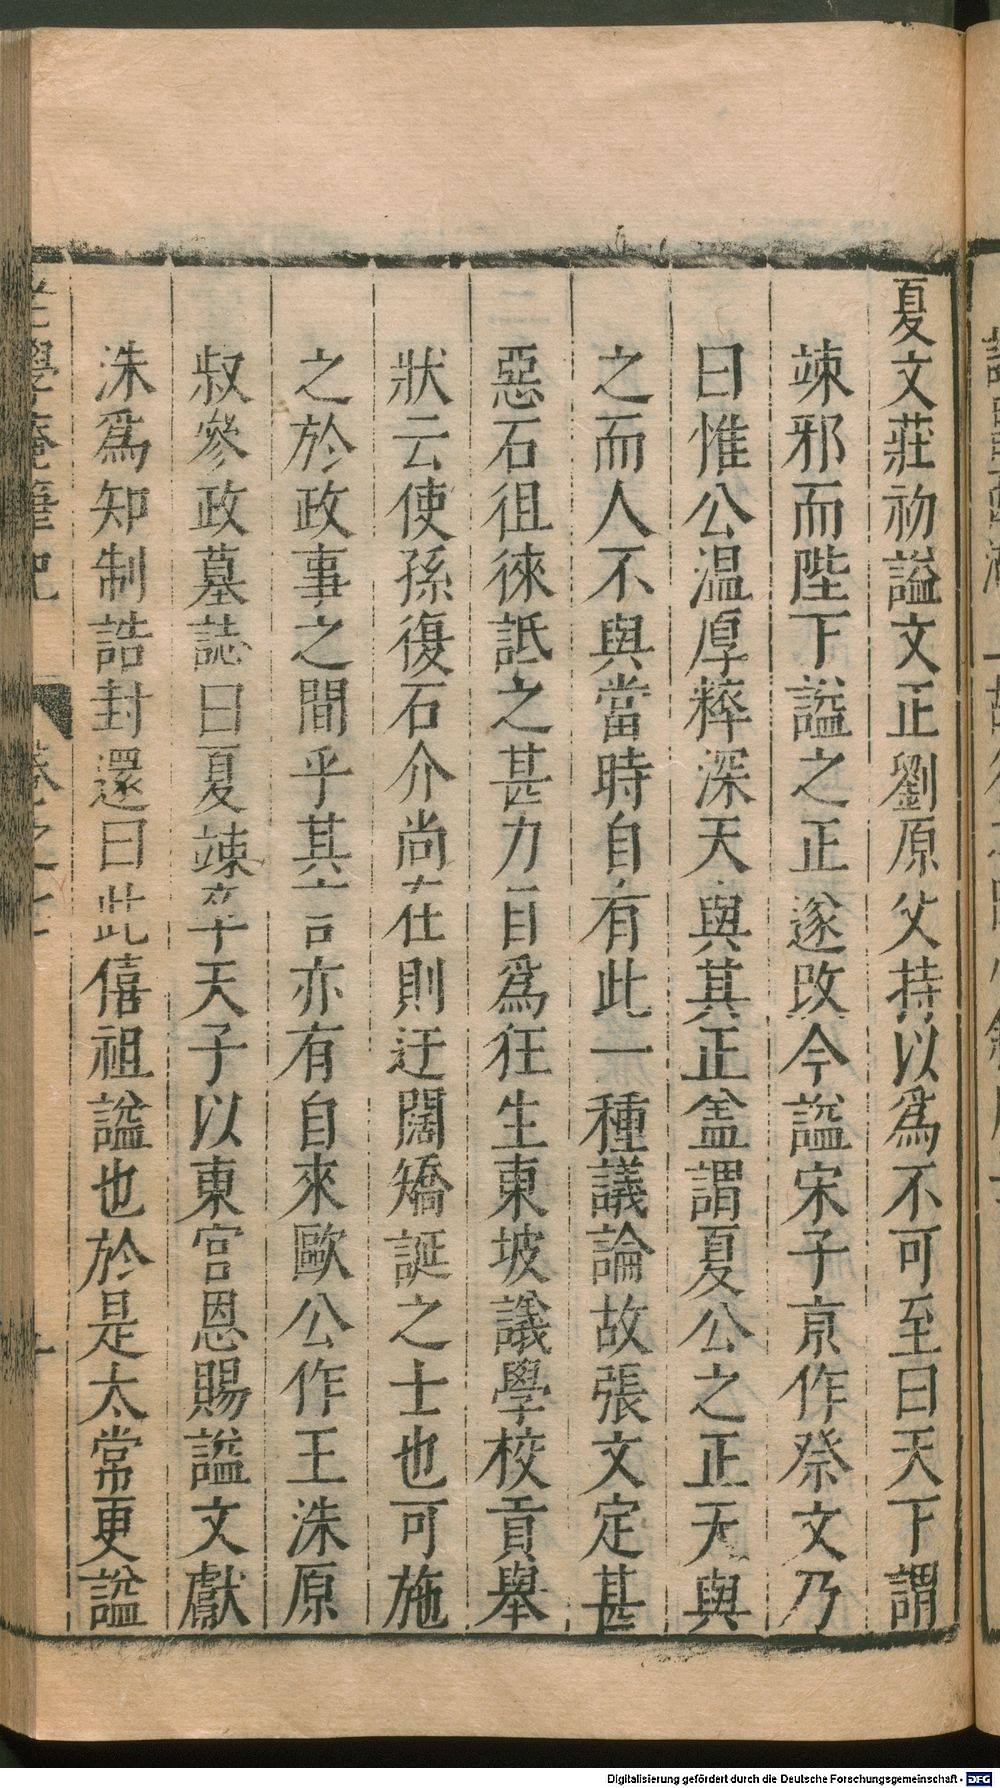 夏文莊初謚文正劉原父持以爲不可至曰天下謂
竦邪而陛下謚之正遂改今謚宋子京作祭文乃
曰惟公温厚粹深天與其正盖謂夏公之正天與
之而人不與當時自有此一種議論故張文定甚
惡石徂徠詆之甚力目爲狂生東坡議學校貢舉
狀云使孫復石介尚在則迂闊矯誕之士也可施
之於政事之間乎其言亦有自來歐公作王洙原
叔參政墓誌曰夏竦卒天子以東宮恩賜謚文獻
洙爲知制誥封還曰此僖祖謚也於是太常更謚
老學菴筆記 卷之七
Digitalisierung gefördert durch die Deutsche Forschungsgemeinschaft - DFG